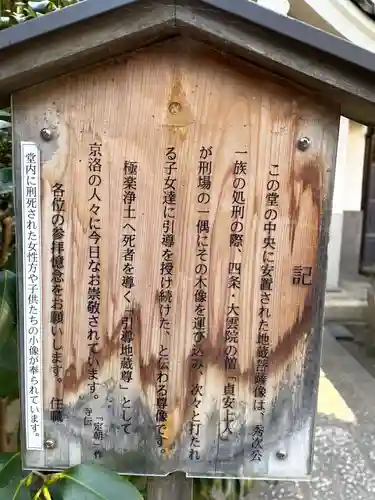 記
この堂の中央に安置された地蔵菩薩像は、秀次公
一族の処刑の際、四条・大雲院の僧「貞安上人」
が刑場の一偶にその木像を運び込み、次々と打たれ
る子女達に引導を授け続けた、と伝わる尊像です。
極楽浄土へ死者を導く「引導地蔵尊」として
京洛の人々に今日なお崇敬されています。
「定朝」作
寺伝
各位の参拝憶念をお願いします。住職
堂内に刑死された女性方や子供たちの小像が奉られています。